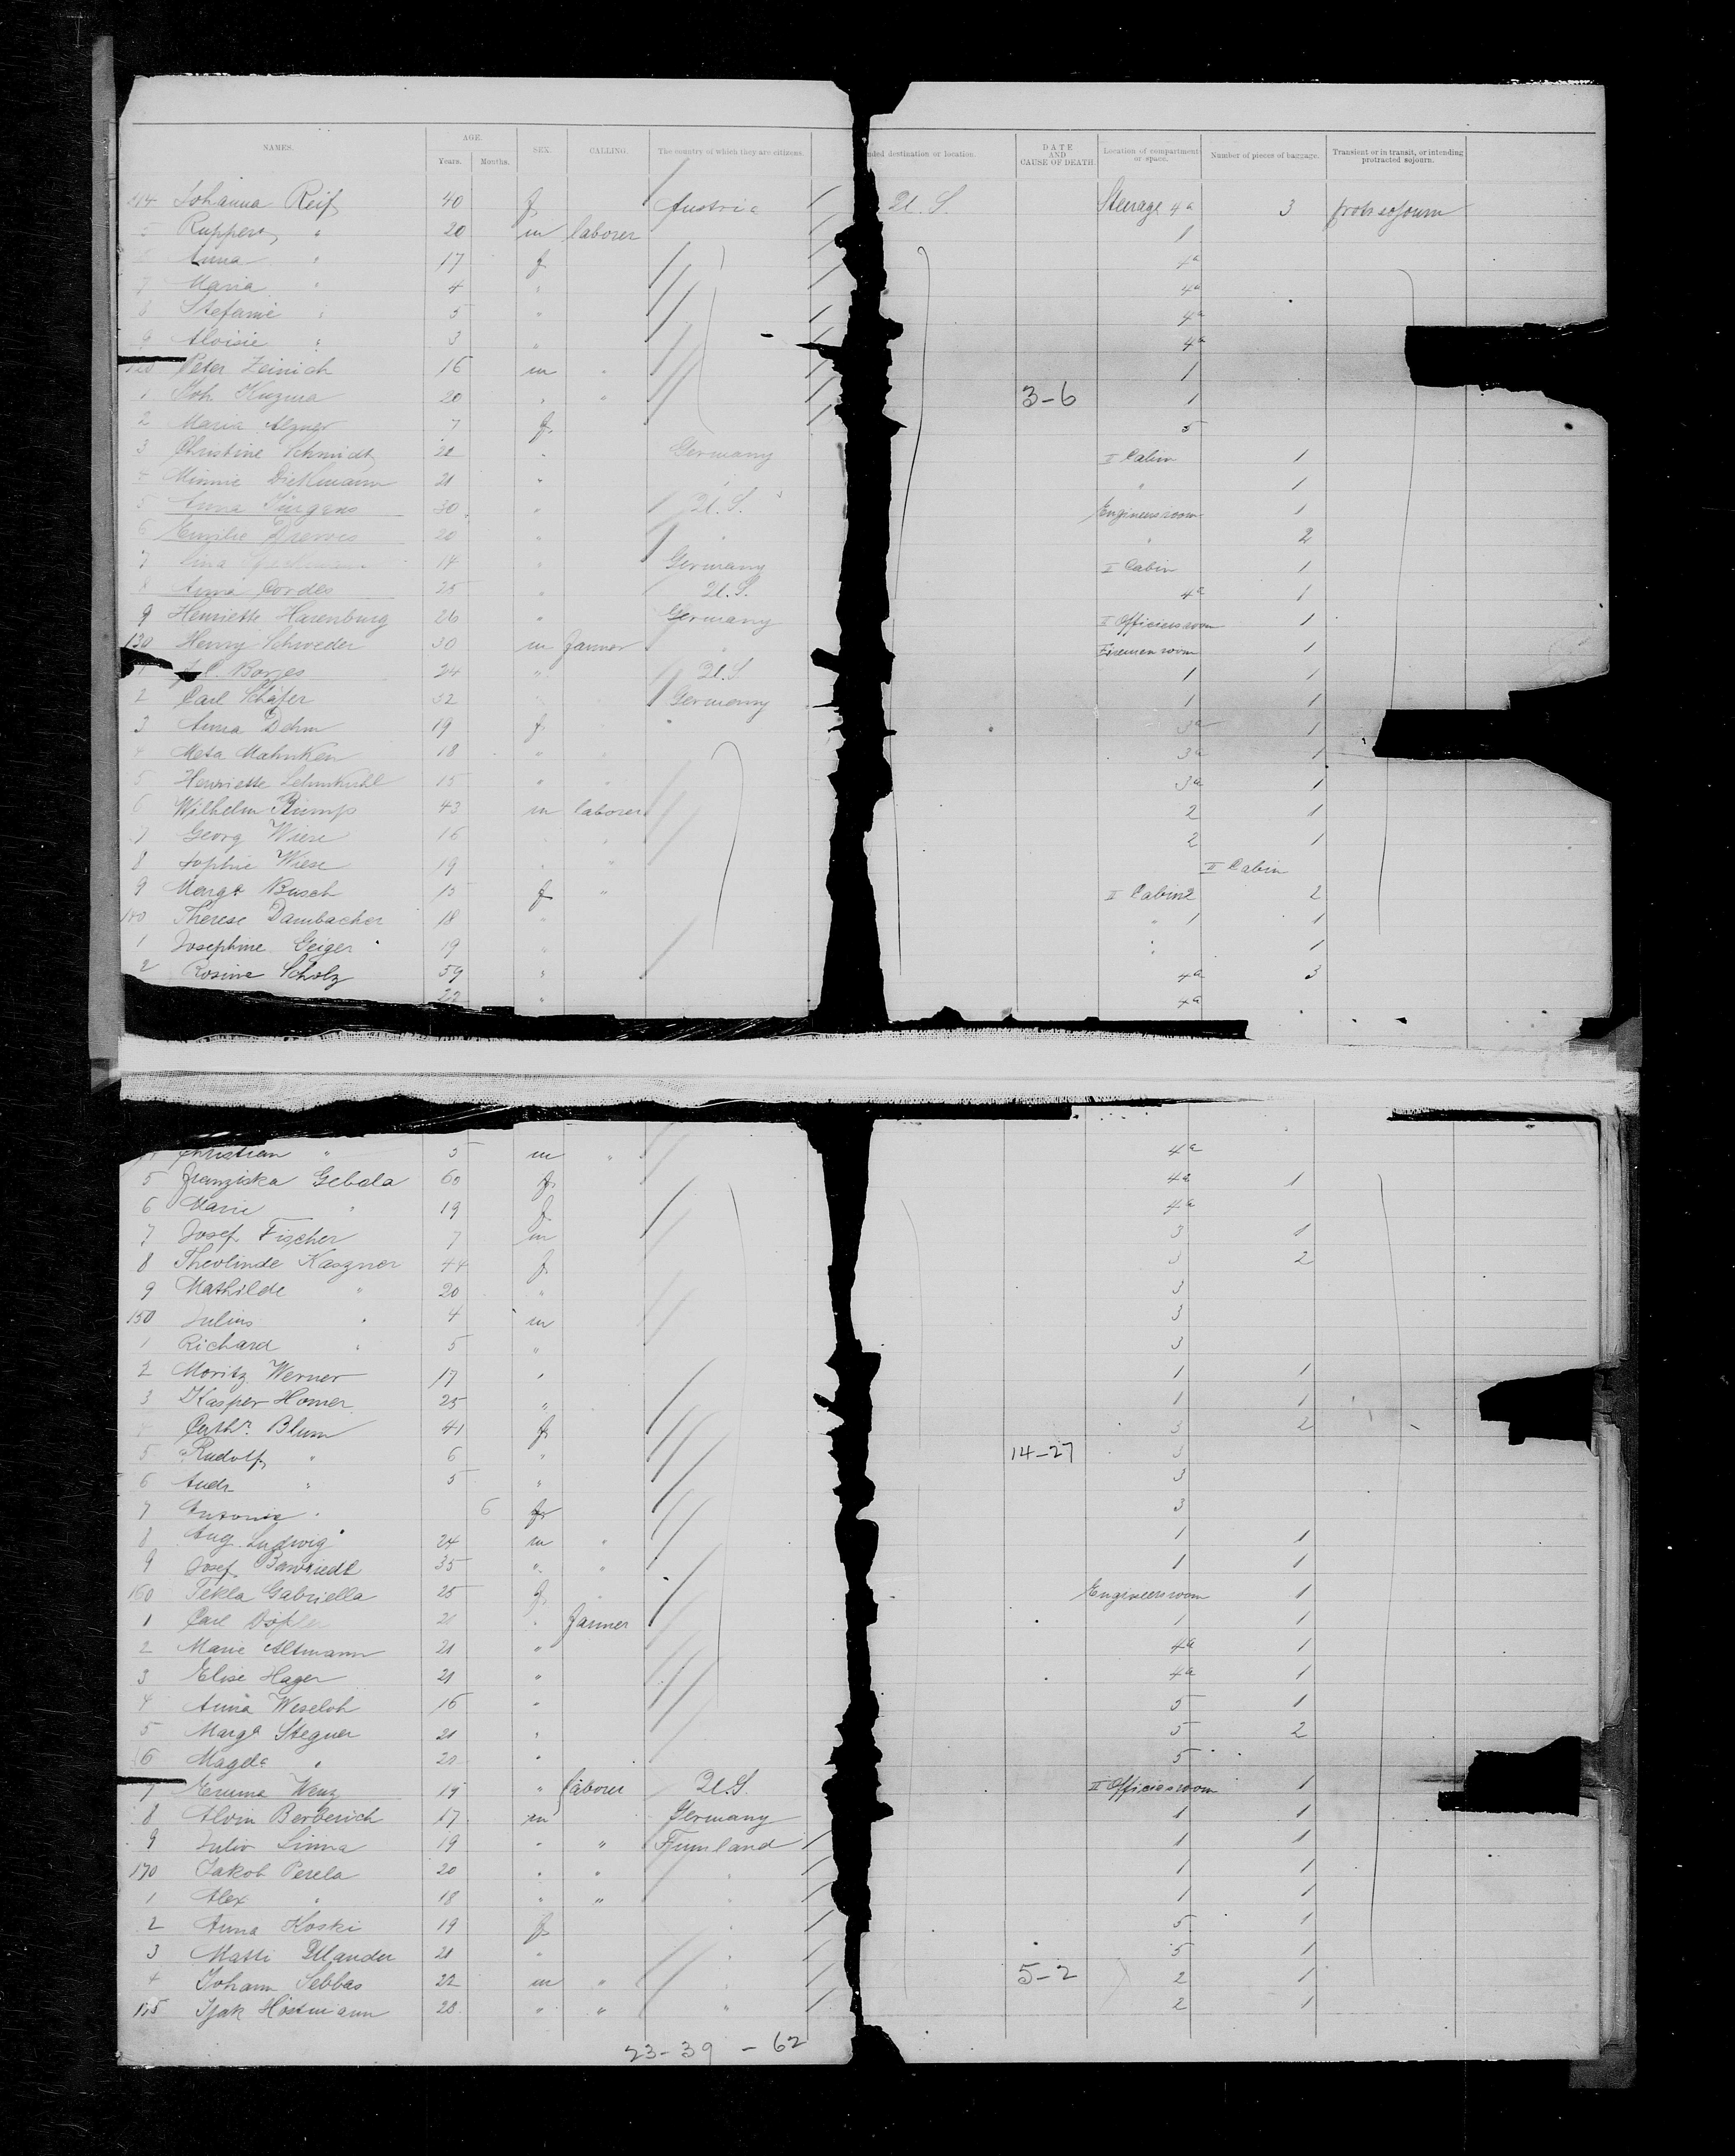 NAMES. AGE. Years. Months. SEX. CALLING. The country of which they are citizens. nded destination or location. DATE AND CAUSE OF DEATH. Location of compartment or space. Number of pieces of baggage. Transient or in transit, or intending protracted sojourn.
114 Johanna Reif 40 f Austria U. S. Steerage 4a 3 protr sojourn
5 Ruppert " 20 m laborer 1
Anna " 17 f 4a
7 Maria " 4 " 4a
8 Stefanie " 5 " 4a
9 Aloisie " 3 " 4a
120 Peter Zeinich 16 m " 1
1 Joh. Kuzma 20 " " 3-6 1
2 Maria 7 f 5
3 Christine Schmidt 22 " Germany II Cabin 1
4 Minnie Diekmann 21 " " " 1
5 Anna Jürgens 30 " U. S. Engineersroom 1
6 Emilie Drewes 20 " " " 2
7 Lina 14 " Germany II Cabin 1
8 Anna Cordes 25 " U. S. 4a 1
9 Henriette Harenburg 26 " Germany I Officiersroom 1
130 Henry Schroeder 30 m farmer " Firemen room 1
1 Borges 24 " U. S 1 1
2 Carl Schäfer 32 Germany 1 1
3 Anna Dehm 19 f " 3a 1
4 Meta Mahnken 18 " 3a 1
5 Henriette Lehmkuhl 15 " " 3a 1
6 Wilhelm Rump 43 m laborer 2 1
7 Georg Wiese 16 " " 2 1
8 Sophie Wiese 19 " " II Cabin
9 Marga Busch 15 f " II Cabin 2 2
140 Therese Dambacher 18 " " 1 1
1 Josephine Geiger 19 " " 1
2 Rosine Scholz 59 " 4a 3
22 " 4a
Christian " 5 m " 4a
5 Franziska Gebala 60 f 4a 1
6 Marie " 19 f 4a
7 Josef Fischer 7 m 3 1
8 Theolinde Kaszner 44 f 3 2
9 Mathilde " 20 " 3
150 Julius " 4 m 3
1 Richard " 5 " 3
2 Moritz Werner 17 " 1 1
3 Kasper Homer 25 " 1 1
4 Cathr. Blum 41 f 3 2
5 Rudolf " 6 " 14-27 3
6 Andr " 5 " 3
7 Antonie " 6 f 3
8 Aug. Ludwig 24 m " 1 1
9 Josef 35 " " 1 1
160 Tekla Gabriella 25 f Engineersroom 1
1 Carl 21 " farmer 1 1
2 Marie Altmann 21 " 4a 1
3 Elise Hager 21 " 4a 1
4 Anna Weseloh 16 " 5 1
5 Marga Stegner 21 " 5 2
6 Magda " 21 " 5
7 Emma Wenz 19 " laborer U. S. II Officiersroom 1
8 Alvin Berberich 17 m Germany 1 1
9 Julio Linna 19 " " Finnland 1 1
170 Jakob Perela 20 " " " 1 1
1 Alex " 18 " " " 1 1
2 Anna Koski 19 f " 5 1
3 Matti 21 " " 5 1
4 Johann Sebbas 22 m " " 5-2 2 1
175 Isak Höstmann 28 " " " 2 1
23-39 - 62